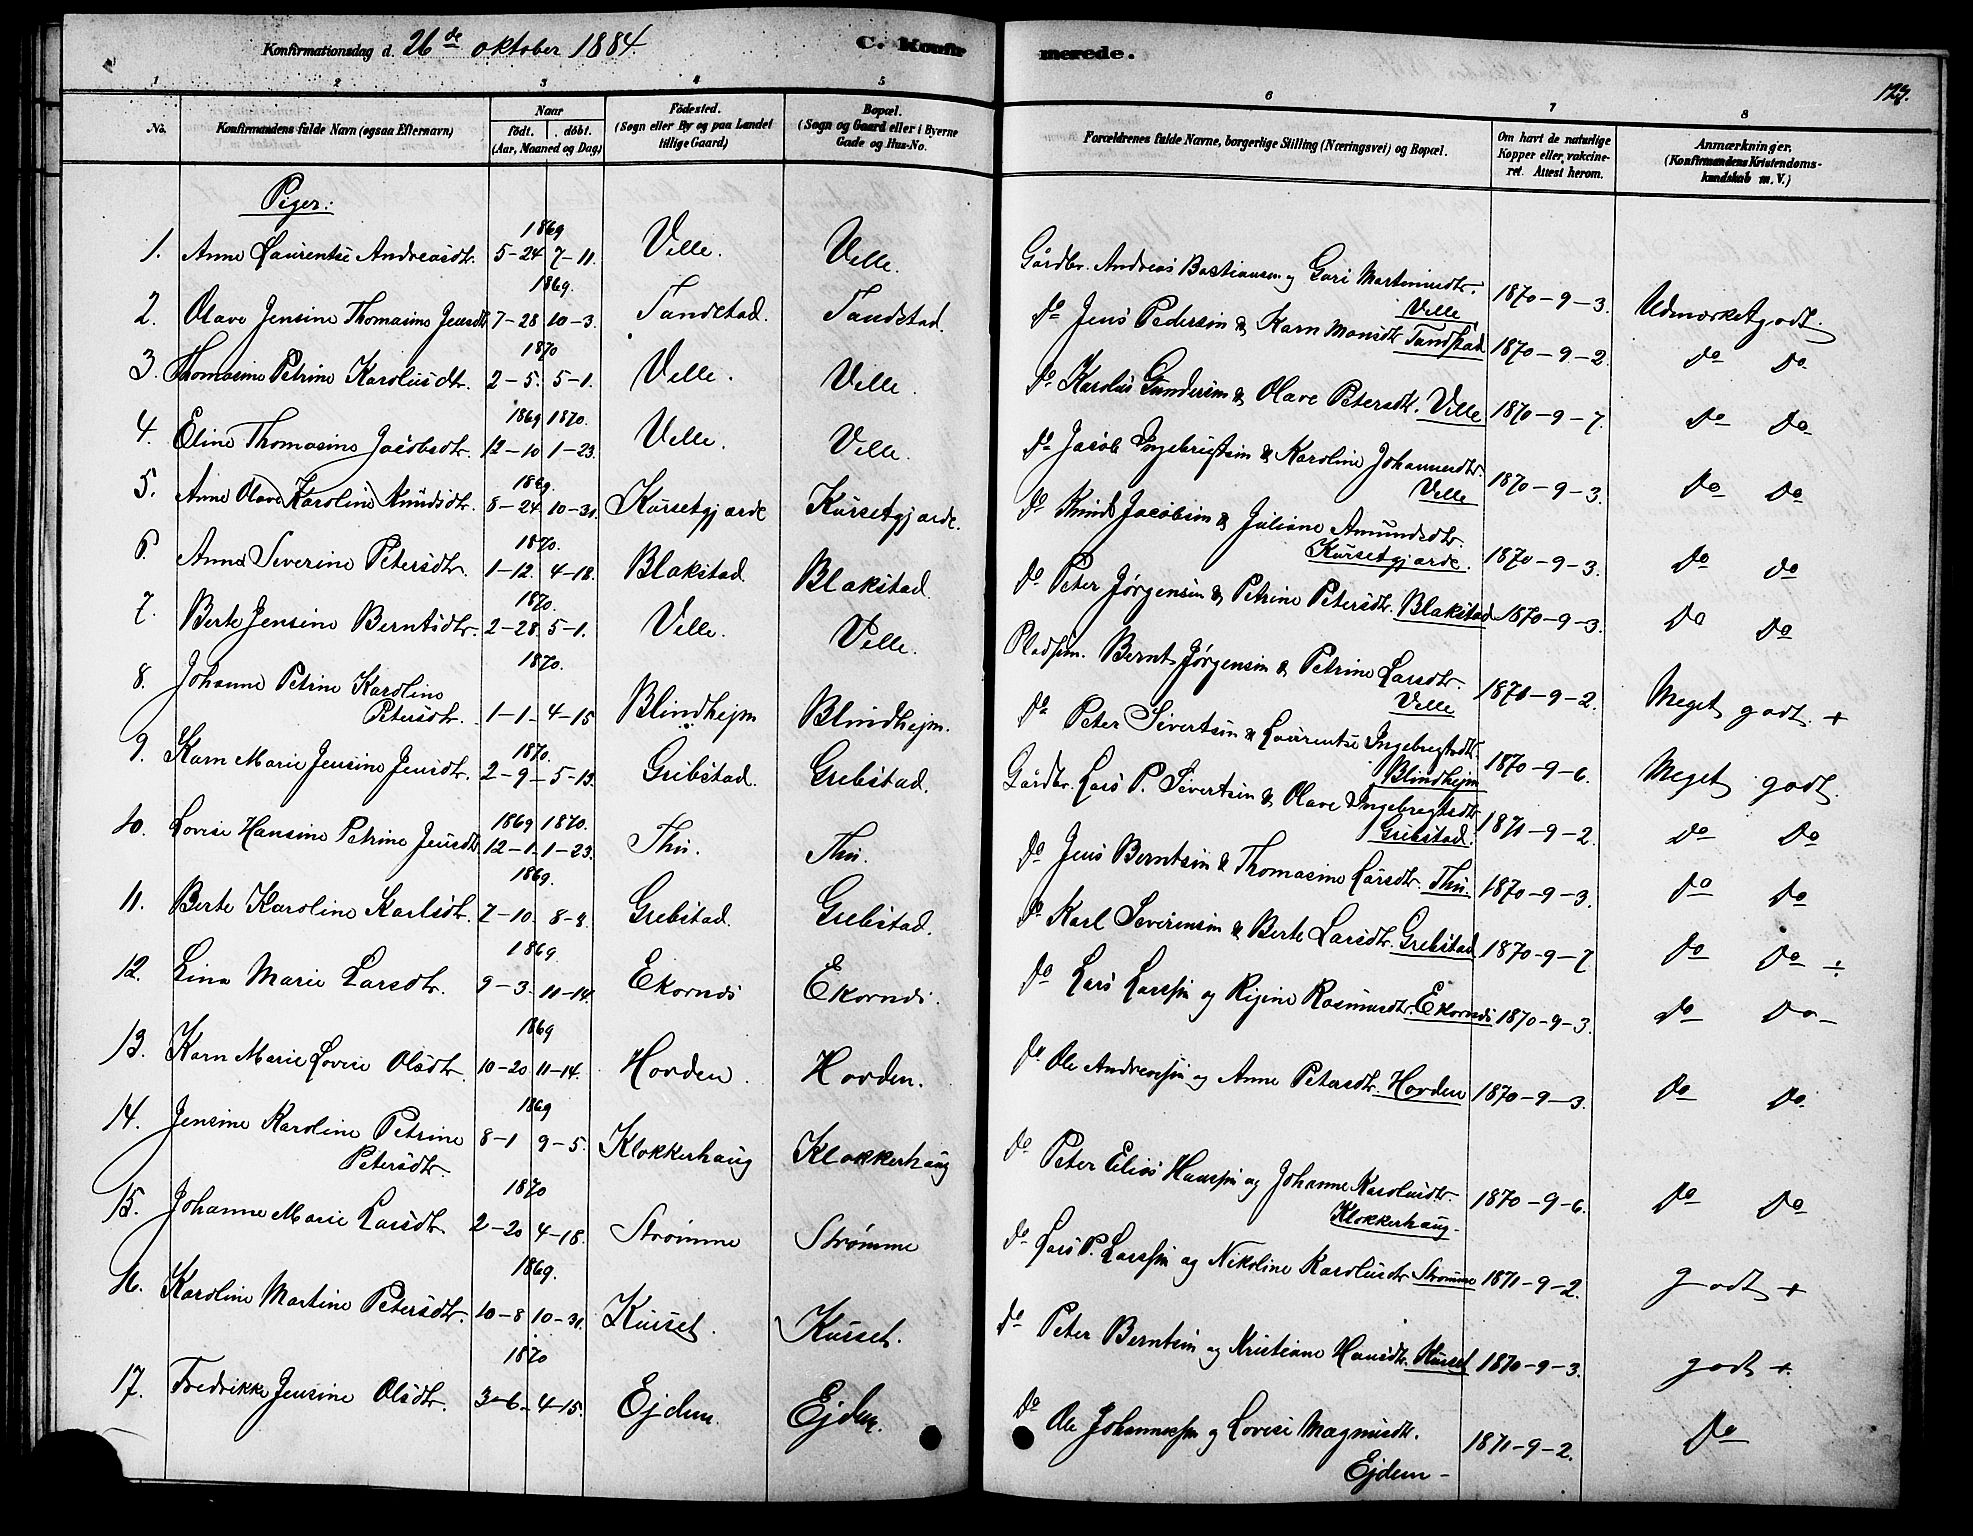 Konfirmationsdag d. 26de oktober 1884 C. Konfirmerede. 127.
1 2 3 4 5 6 7 8
No. Konfirmandens fulde Navn (ogsaa Efternavn) Naar født. døbt. (Aar, Maaned og Dag) Fødested. (Sogn eller By og paa Landet tillige Gaard) Bopæl. (Sogn og Gaard eller i Byerne Gade og Hus-No. Forældrenes fulde Navne, borgerlige Stilling (Næringsvei) og Bopæl. Om havt de naturlige Kopper eller vakcineret. Attest herom. Anmærkninger. (Konfirmandens Kristendomskundskab m. V.)
Piger:
1869
1. Anne Laurentse Andreasdtr. 5-24 7-11. Velle. Velle. Gårdbr. Andreas Bastiansen og Guri Martinusdtr. Velle 1870-9-3. Udmærket godt.
1869.
2. Olave Jensine Thomasine Jensdtr 7-28 10-3. Tandstad. Tandstad. do Jens Pedersen & Karn Monsdtr Tandstad 1870-9-2. do do
1870
3. Thomasine Petrine Karolusdtr. 2-5. 5-1. Velle. Velle. do Karolus Gundersen & Olave Petersdtr. Velle 1870-9-7. do do
1869 1870.
4. Eline Thomasine Jacobsdtr. 12-10 1-23. Velle. Velle. do Jacob Ingebrigtsen & Karoline Johannesdtr. Velle 1870-9-3. do do
1869.
5. Anne Olave Karoline Knudsdtr. 8-24 10-31. Kursetgjærde Kursetgjærde. do Knud Jacobsen & Juliane Amundsdtr. Kursetgjærde. 1870-9-3. do do
1870.
6. Anne Severine Petersdtr. 1-12. 4-18. Blakstad Blakstad. do Peter Jørgensen & Petrine Petersdtr. Blakstad 1870-9-3. do do
1870.
7. Berte Jensine Berntsdtr. 2-28. 5-1. Velle. Velle. Pladsm. Bernt Jørgensen & Petrine Larsdtr. Velle 1871-9-2. Meget godt. +
1870.
8. Johanne Petrine Karoline Petersdtr. 1-1 4-15 Blindhejm Blindhejm. do Peter Sivertsen & Laurentse Ingebregtsdtr. Blindhejm 1870-9-6. Meget godt.
1870.
9. Karn Marie Jensine Jensdtr. 2-9 5-13. Grebstad. Grebstad. Gårdbr. Lars P. Sivertsen & Olave Ingebregtsdtr Grebstad. 1871-9-2. do do
1869 1870.
10. Lovise Hansine Petrine Jensdtr. 12-1. 1-23. Thu. Thu. do Jens Berntsen & Thomasine Larsdtr. Thu. 1870-9-3. do do
1869.
11. Berte Karoline Karlsdtr. 7-10. 8-8. Grebstad. Grebstad. do Karl Severinsen & Berte Larsdtr. Grebstad 1870-9-7 do do ÷
1869.
12. Lina Marie Larsdtr. 9-3. 11-14. Ekornæs Ekornæs. do Lars Larssen og Regine Rasmusdtr. Ekornæs 1870-9-3. do do
1869
13. Karn Marie Lovise Olsdtr. 10-20 11-14. Hovden. Hovden. do Ole Andreassen og Anne Petersdtr. Hovden 1870-9-3. do do.
1869
14. Jensine Karoline Petrine Petersdtr. 8-1 9-5. Klokkerhaug Klokkerhaug do Peter Elias Hanssen og Johanne Karolusdtr. Klokkerhaug. 1870-9-6. do do
1870
15. Johanne Marie Larsdtr. 2-20 4-18. Strømme Strømme do Lars P. Larssen og Nikoline Karolusdtr Strømme 1871-9-2. godt +
1869.
16. Karoline Martine Petersdtr. 10-8 10-31. Kurset. Kurset. do Peter Berntsen og Kristiane Hansdtr. Kurset 1870-9-3. godt +.
1870
17. Fredrikke Jensine Olsdtr. 3-6. 4-15. Ejdem. Ejdem. do Ole Johannessen og Lovise Magnusdtr. Ejdem 1871-9-2. do